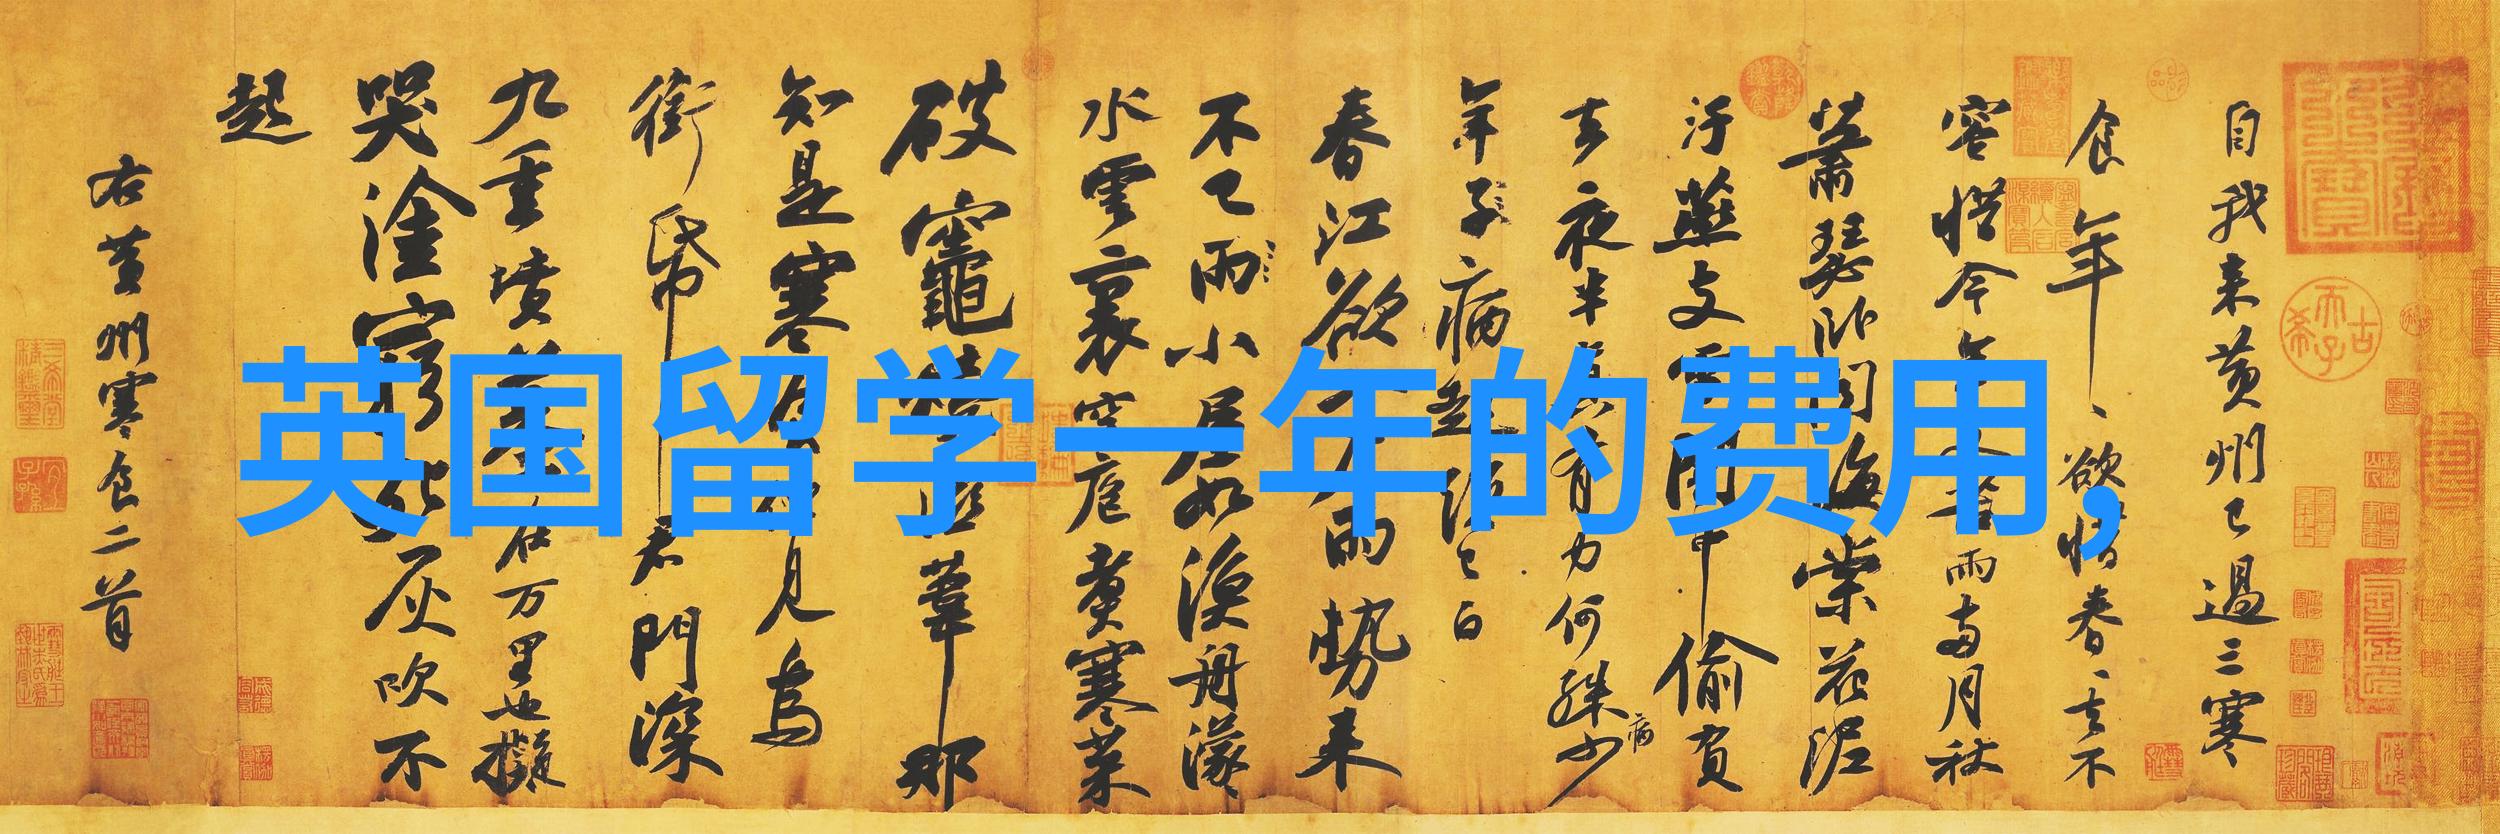 自我来黄州已過三寒
食年年欲惜春春去不
容惜今年又苦雨兩月秋
蕭瑟卧聞海棠花泥
汙燕支雪闇中偷負
去夜半真有力何殊少
年子病起頭已白
春江欲入户雨勢来
不已雨小屋如漁舟濛
水雲裏空庖煮寒菜
破竈燒濕葦那
知是寒食但見烏
銜帋君門深
九重墳墓在万里也擬
哭塗窮死灰吹不
起
右黄州寒食二首
英国留学一年的费用,